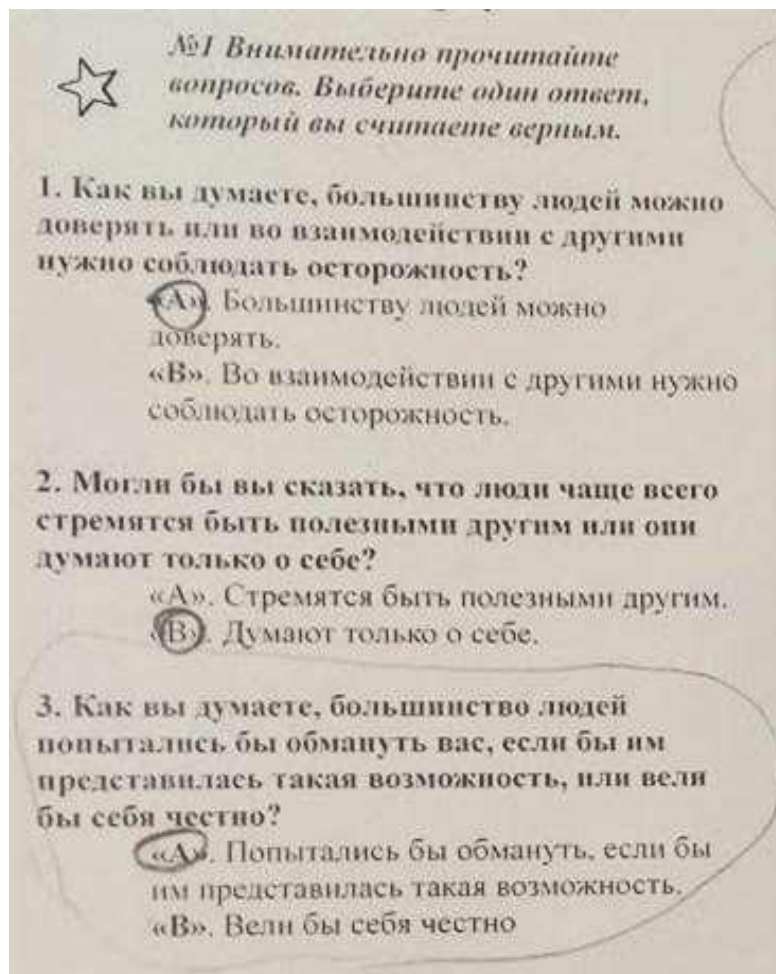 №1 Внимательно прочитайте
вопросов. Выберите один ответ,
который вы считаете верным.
1. Как вы думаете, большинству людей можно
доверять или во взаимодействии с другими
нужно соблюдать осторожность?
«А». Большинству людей можно
доверять.
«В». Во взаимодействии с другими нужно
соблюдать осторожность.
2. Могли бы вы сказать, что люди чаще всего
стремятся быть полезными другим или они
думают только о себе?
«А». Стремятся быть полезными другим.
«В». Думают только о себе.
3. Как вы думаете, большинство людей
попытались бы обмануть вас, если бы им
представилась такая возможность, или вели
бы себя честно?
«А». Попытались бы обмануть, если бы
им представилась такая возможность.
«В». Вели бы себя честно